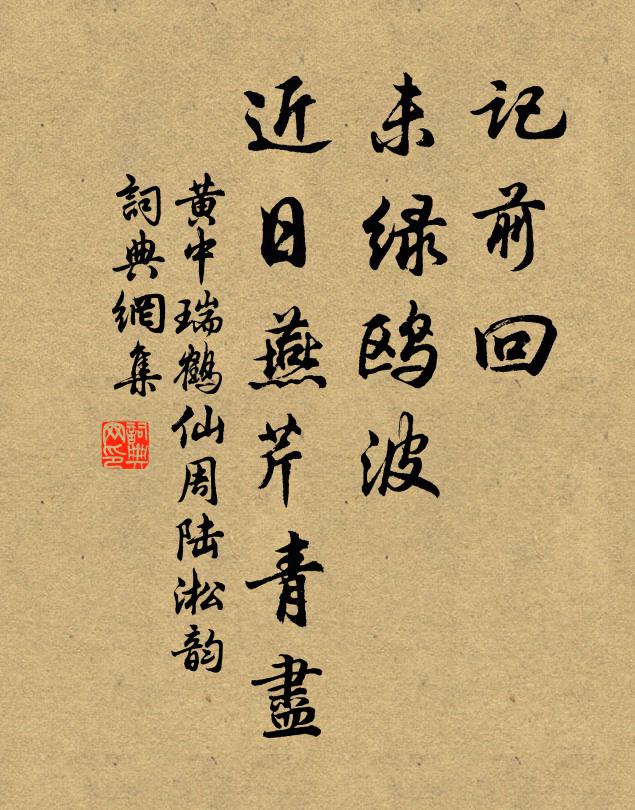 记前回
未绿鸥波
近日燕芹青盡
黄中瑞鶴仙周陆淞韵
詞典網集
詞典網印